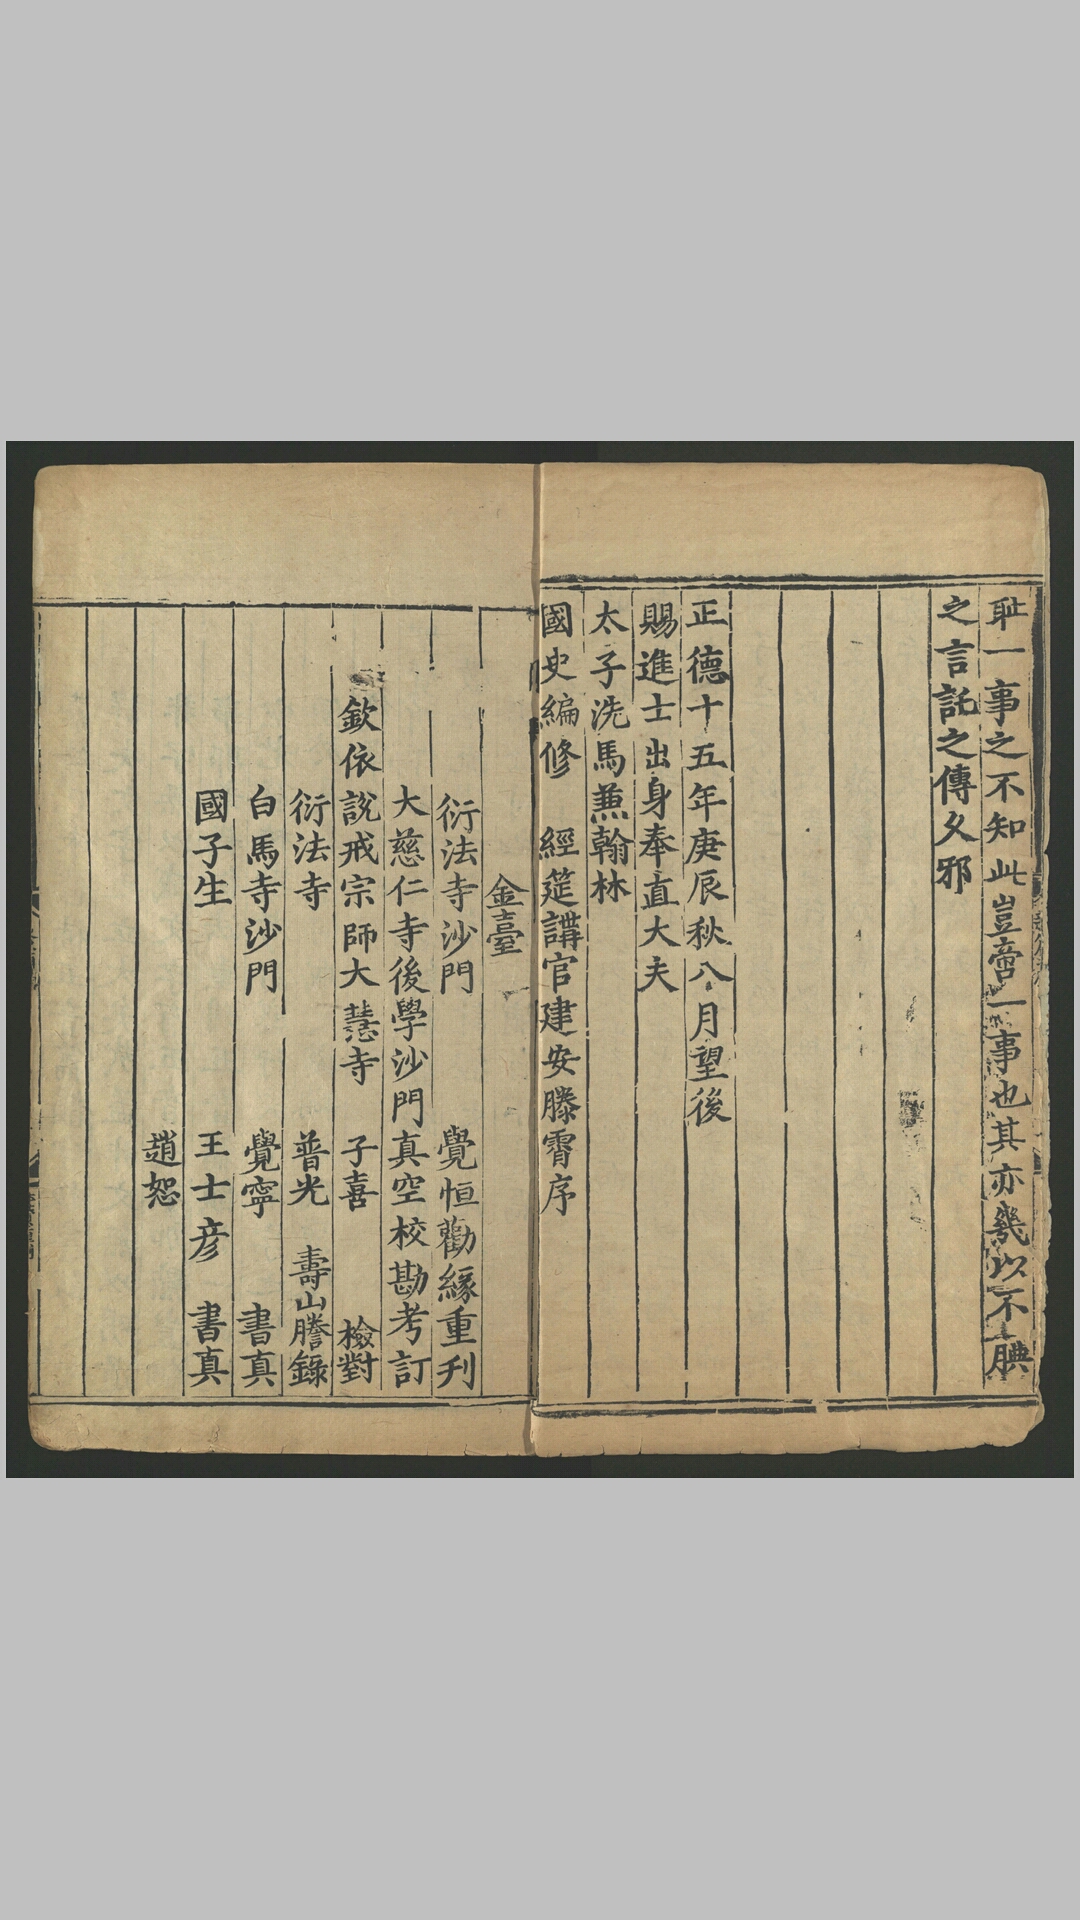 耻一事之不知此豈啻一事也其亦幾以不腆
之言託之傳乆邪
正德十五年庚辰秋八月望後
賜進士出身奉直大夫
太子洗馬蒹翰林
國史編修　經筵講官建安滕霄序
金臺
衍法寺沙門　覺恒勸緣重刋
大慈仁寺後學沙門真空校勘考訂
欽依說戒宗師大慧寺　子喜　檢對
衍法寺　普光　壽山謄錄
白馬寺沙門　覺寧　書真
國子生　王士彦　書真
趙恕